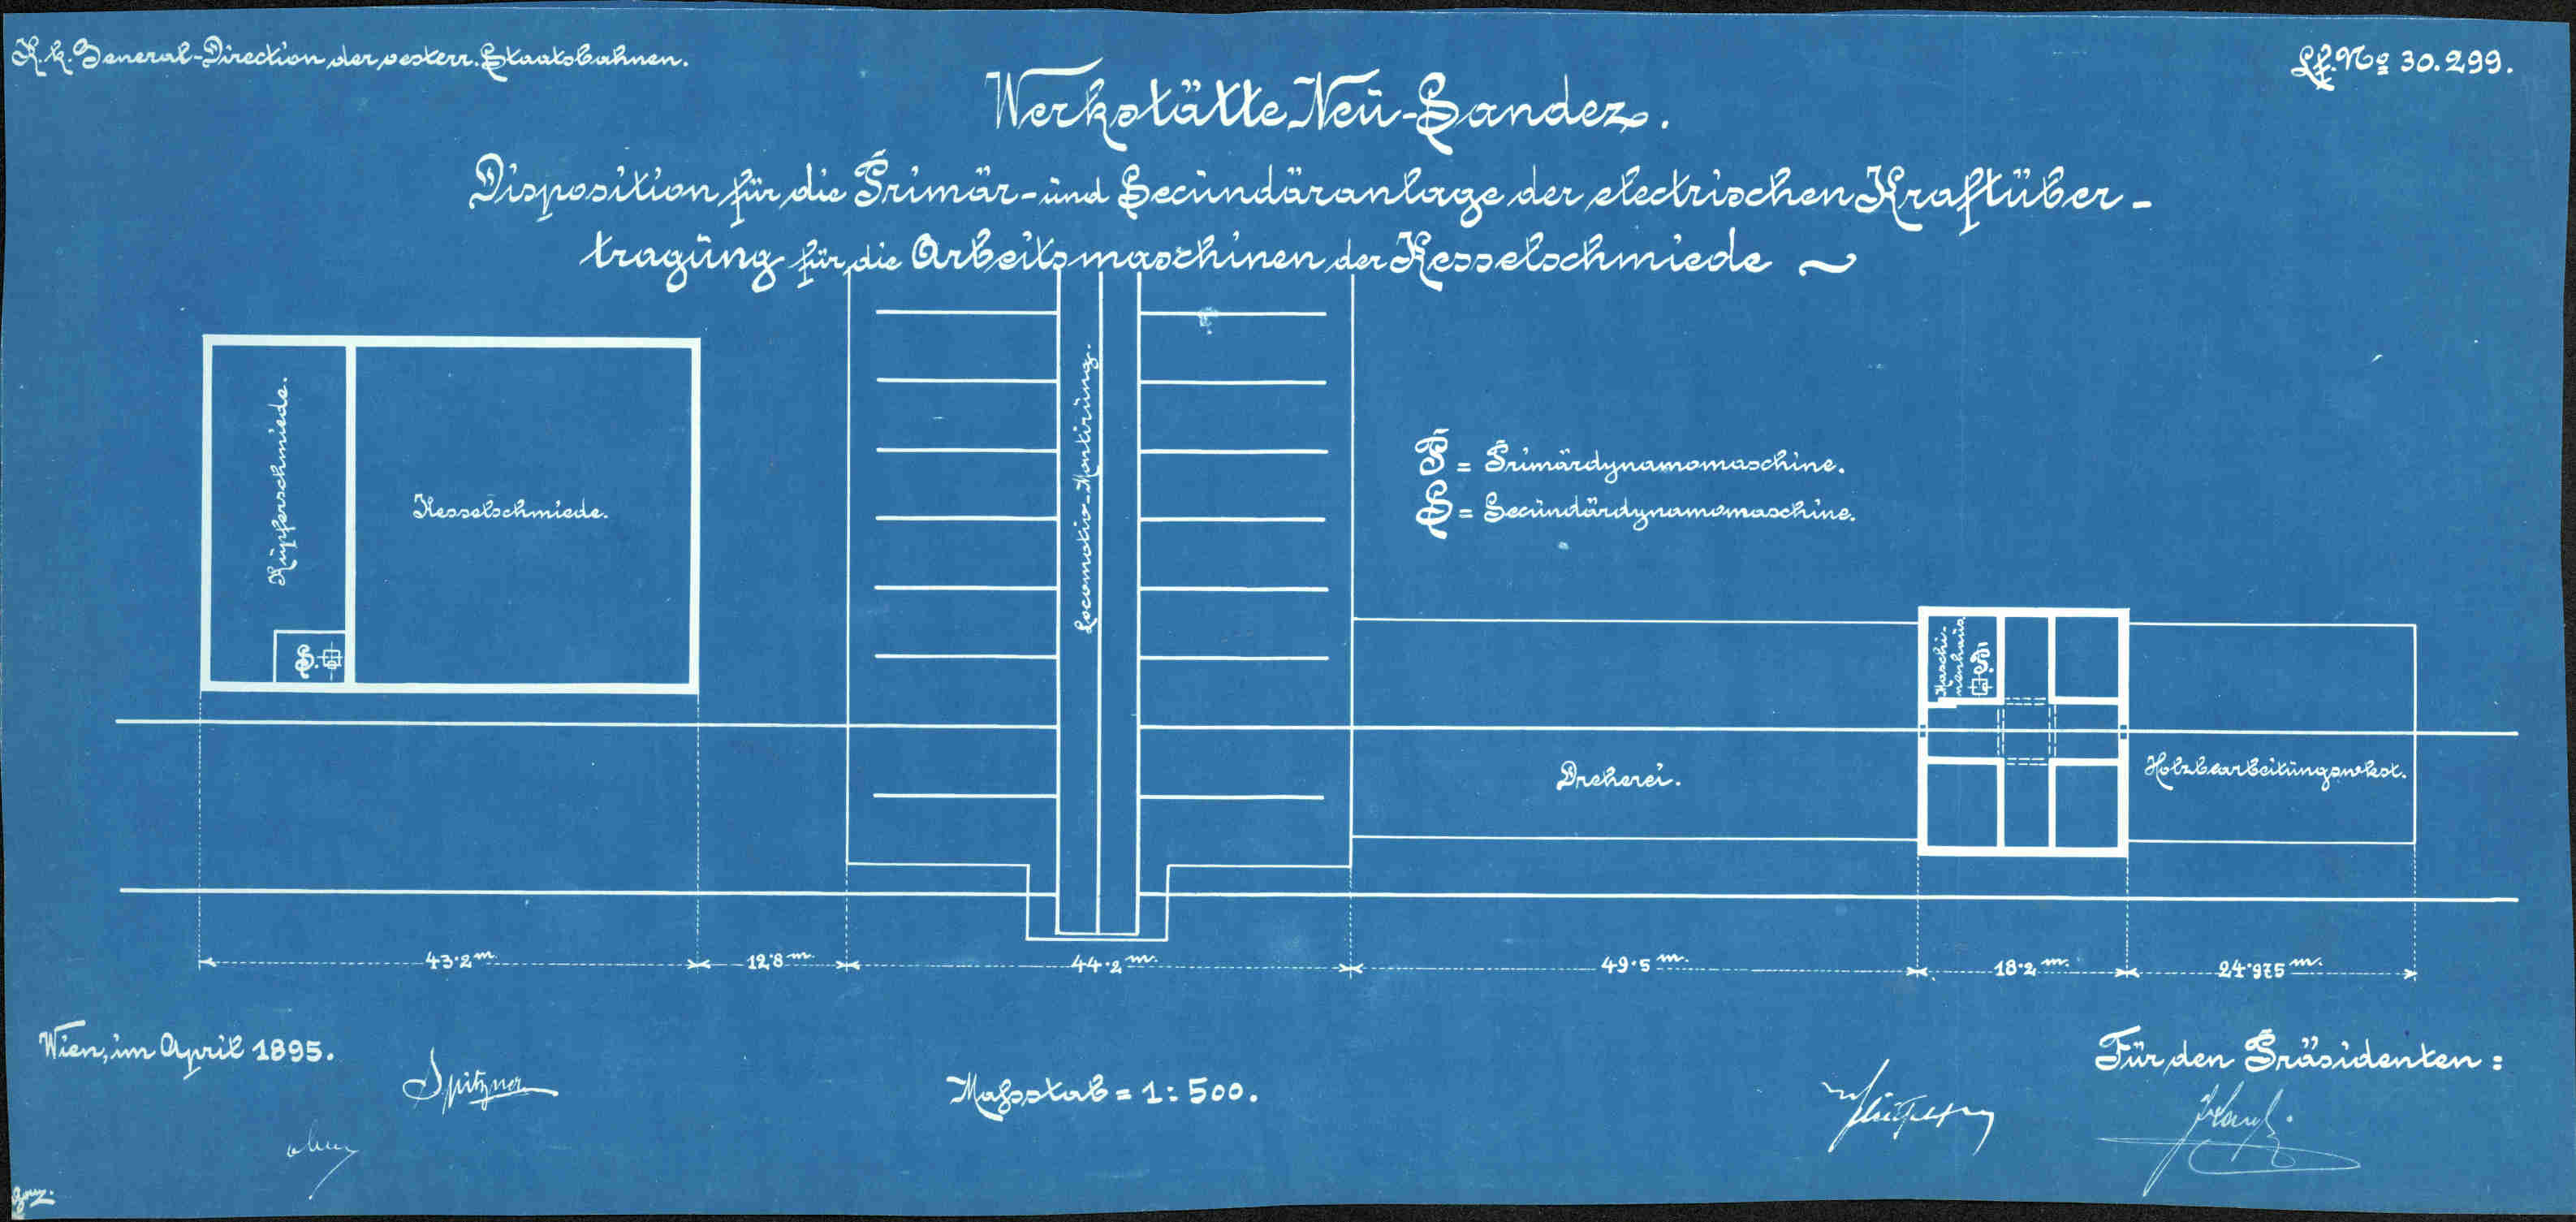 K. k. General-Direction der oesterr. Staatsbahnen.
Lf. No 30.299.
Werkstätte Neu-Sandez.
Disposition für die Primär- und Secundäranlage der electrischen Kraftüber-
tragung für die Arbeitsmaschinen der Kesselschmiede ~
Kupferschmiede.
Kesselschmiede.
S.
Locomotiv-Montirung.
P = Primärdynamomaschine.
S = Secundärdynamomaschine.
Maschi-
nenhaus
P
Dreherei.
Holzbearbeitungswkst.
43·2 m. 12·8 m. 44·2 m. 49·5 m. 18·2 m. 24·975 m.
Wien, im April 1895.
Spitzner
Maßstab = 1:500.
Für den Präsidenten: